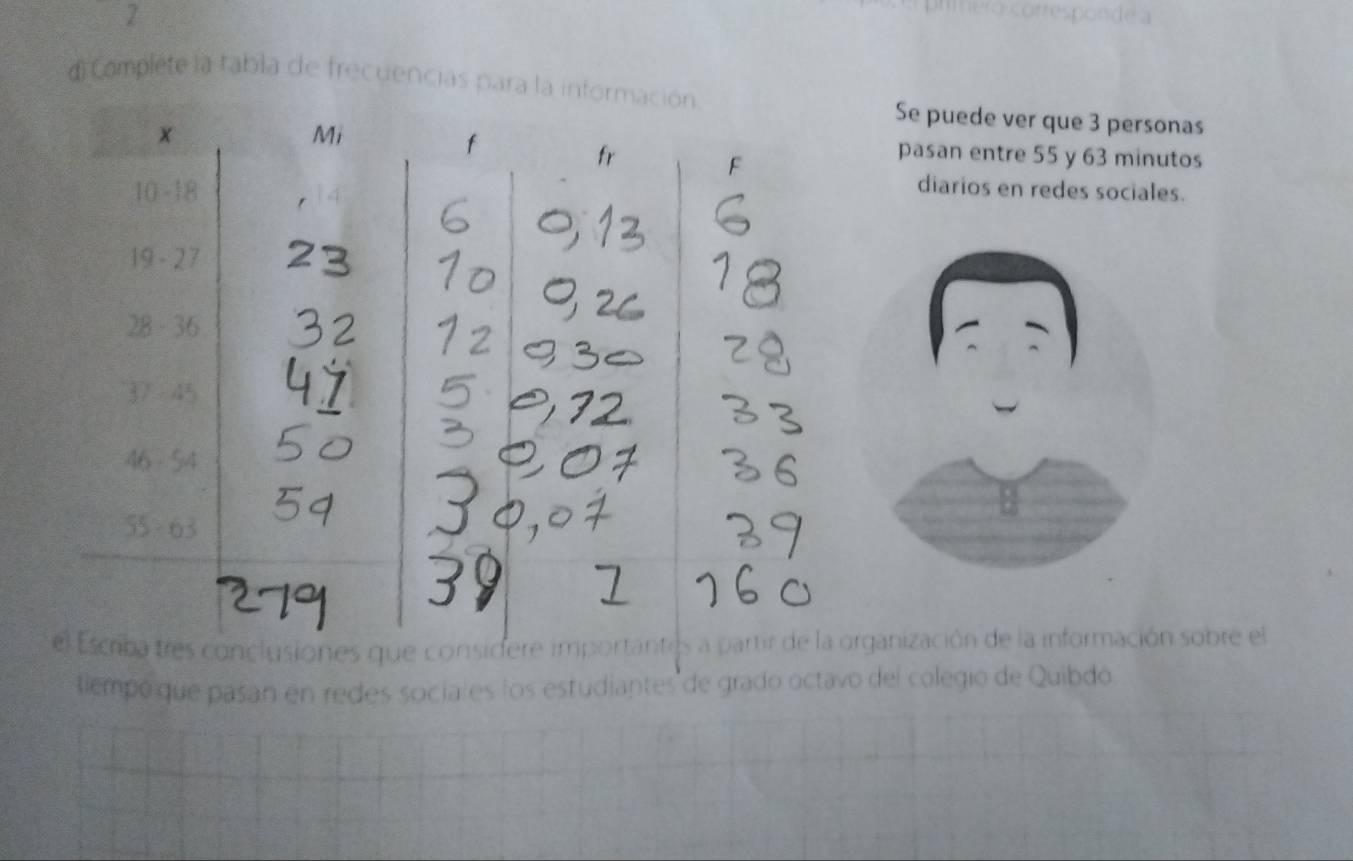 2
primero corresponde a
d) Complete la tabla de frecuencias para la información.
Se puede ver que 3 personas
pasan entre 55 y 63 minutos
diarios en redes sociales.
x Mi f fr F
10 - 18 14 6 0,13 6
19 - 27 23 10 0,26 18
28 - 36 32 12 0,30 28
37 - 45 41 5 0,12 33
46 - 54 50 3 0,07 36
55 - 63 59 3 0,07 39
219 39 1 160
e) Escriba tres conclusiones que considere importantes a partir de la organización de la información sobre el
tiempo que pasan en redes sociales los estudiantes de grado octavo del colegio de Quibdó.